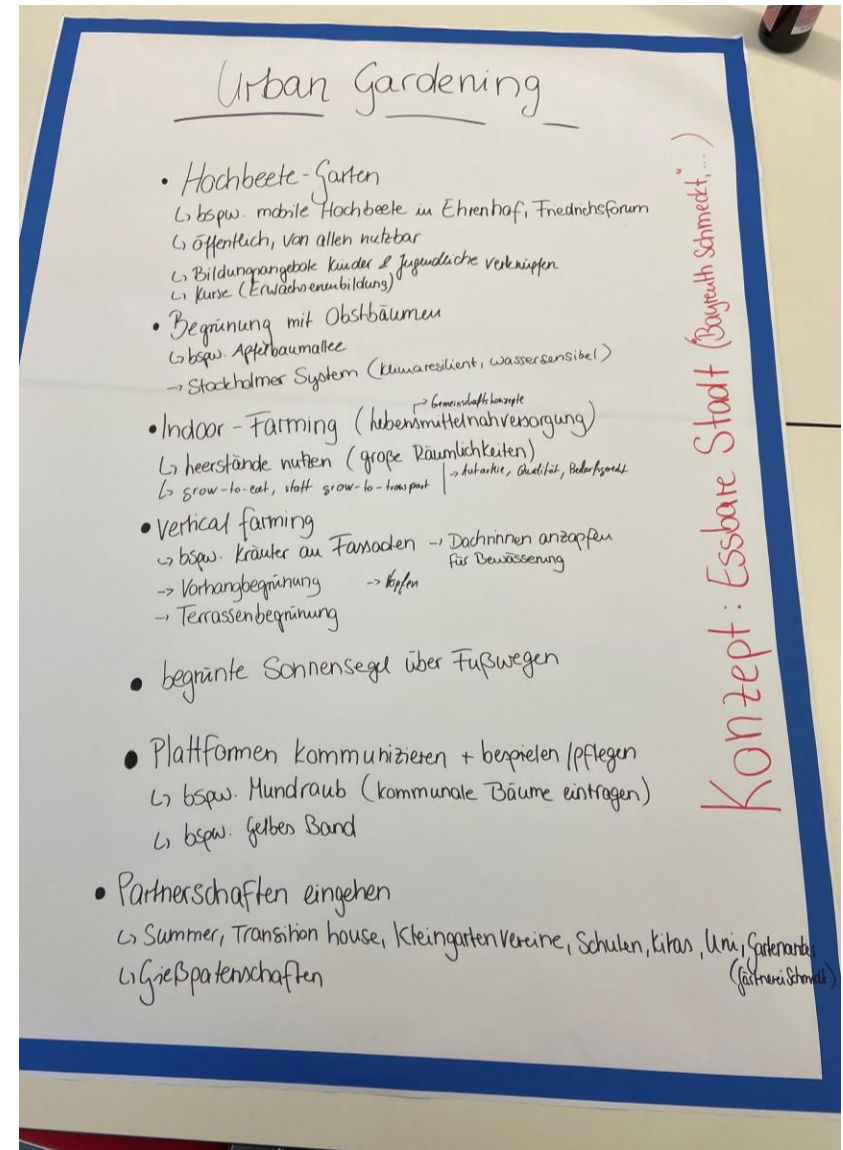 Urban Gardening
• Hochbeete-Garten
↳ bspw. mobile Hochbeete in Ehrenhof, Friedrichsforum
↳ öffentlich, von allen nutzbar
↳ Bildungsangebote Kinder & Jugendliche verknüpfen
↳ Kurse (Erwachsenenbildung)
• Begrünung mit Obstbäumen
↳ bspw. Apfelbaumallee
→ Stockholmer System (klimaresilient, wassersensibel)
→ Gemeinschaftskonzepte
• Indoor-Farming (Lebensmittelnahversorgung)
↳ Leerstände nutzen (große Räumlichkeiten)
↳ grow-to-eat, statt grow-to-transport | → Autarkie, Qualität, Bedarfsgerecht
• vertical farming
↳ bspw. Kräuter an Fassaden → Dachrinnen anzapfen
für Bewässerung
→ Vorhangbegrünung → Hopfen
→ Terrassenbegrünung
• begrünte Sonnensegel über Fußwegen
• Plattformen kommunizieren + bespielen/pflegen
↳ bspw. Mundraub (kommunale Bäume eintragen)
↳ bspw. Gelbes Band
• Partnerschaften eingehen
↳ Summer, Transition house, Kleingartenvereine, Schulen, Kitas, Uni,
(Gärtnerei Schmidt)
↳ Gießpatenschaften
Konzept: Essbare Stadt ("Bayreuth schmeckt",...)